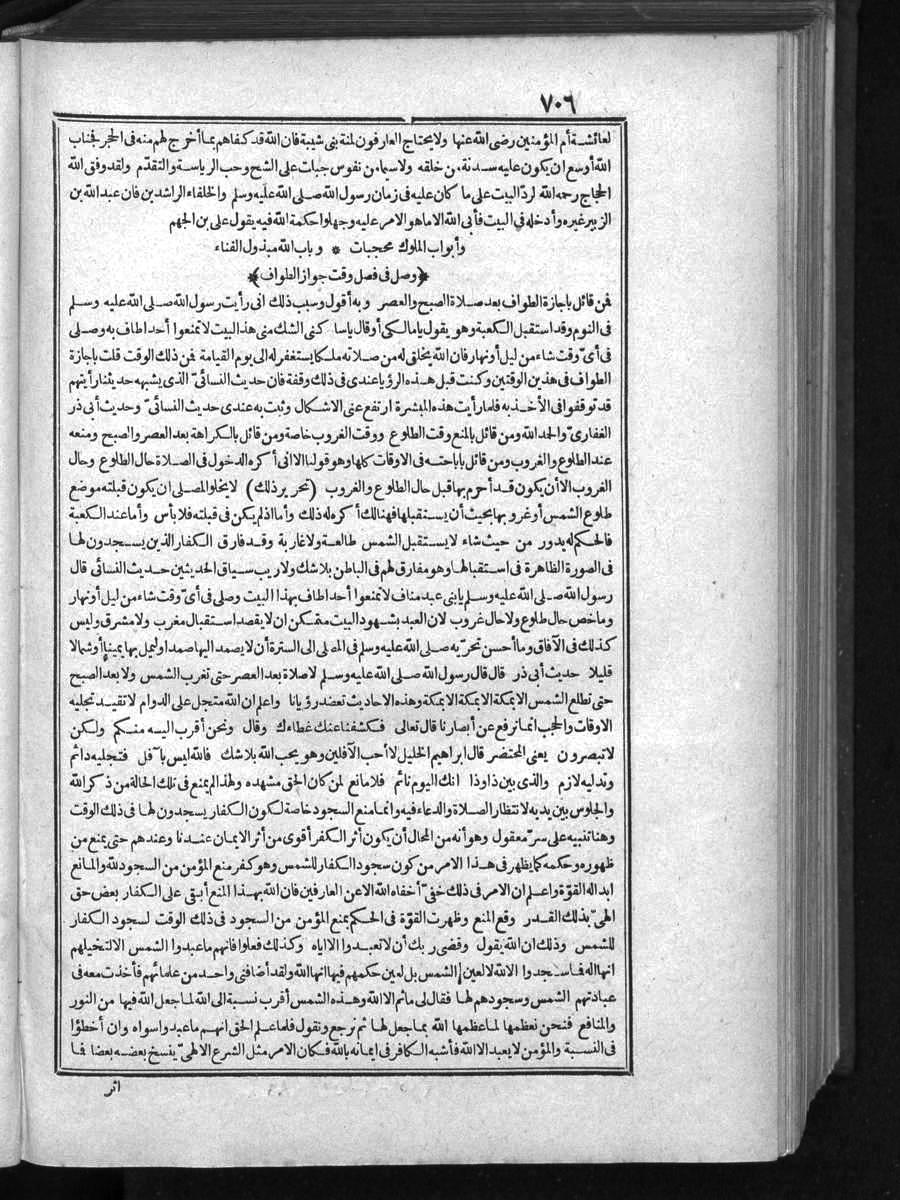 ٧٠٦
لعائشة أم المؤمنين رضى الله عنها ولا يحتاج العارفون لمنة بنى شيبة فان الله قد كفاهم بما أخرج لهم منه فى الحجر فجناب
الله أوسع ان يكون عليه سدنة من خلقه ولا سيما من نفوس جبلت على الشح وحب الرياسة والتقدّم ولقد وفق الله
الحجاج رحمه الله لردّ البيت على ما كان عليه فى زمان رسول الله صلى الله عليه وسلم والخلفاء الراشدين فان عبد الله بن
الزبير غيره وأدخله فى البيت فأبى الله الا ما هو الامر عليه وجهلوا حكمة الله فيه يقول على بن الجهم
وأبواب الملوك محجبات * وباب الله مبذول الفناء
﴿وصل فى فصل وقت جواز الطواف﴾
فمن قائل باجازة الطواف بعد صلاة الصبح والعصر وبه أقول وسبب ذلك انى رأيت رسول الله صلى الله عليه وسلم
فى النوم وقد استقبل الكعبة وهو يقول يا مالكى أو قال يا ساكنى الشك منى هذا البيت لا تمنعوا أحدا طاف به وصلى
فى أىّ وقت شاء من ليل أو نهار فان الله يخلق له من صلاته ملكا يستغفر له الى يوم القيامة فمن ذلك الوقت قلت باجازة
الطواف فى هذين الوقتين وكنت قبل هذه الرؤيا عندى فى ذلك وقفة فان حديث النسائىّ الذى يشبه حديثنا رأيتهم
قد توقفوا فى الأخذ به فلما رأيت هذه المبشرة ارتفع عنى الاشكال وثبت به عندى حديث النسائىّ وحديث أبى ذر
الغفارىّ والحمد لله ومن قائل بالمنع وقت الطلوع ووقت الغروب خاصة ومن قائل بالكراهة بعد العصر والصبح ومنعه
عند الطلوع والغروب ومن قائل باباحته فى الاوقات كلها وهو قولنا الا انى أكره الدخول فى الصلاة حال الطلوع وحال
الغروب الا أن يكون قد أحرم بها قبل حال الطلوع والغروب (تحرير ذلك) لا يخلو المصلى ان يكون قبلته موضع
طلوع الشمس أو غروبها بحيث أن يستقبلها فهنالك أكره له ذلك وأما اذا لم يكن فى قبلته فلا بأس وأما عند الكعبة
فالحكم له يدور من حيث شاء لا يستقبل الشمس طالعة ولا غاربة وقد فارق الكفار الذين يسجدون لها
فى الصورة الظاهرة فى استقبالها وهو مفارق لهم فى الباطن بلا شك ولا ريب سياق الحديثين حديث النسائى قال
رسول الله صلى الله عليه وسلم يا بنى عبد مناف لا تمنعوا أحدا طاف بهذا البيت وصلى فى أىّ وقت شاء من ليل أو نهار
وما خص حال طلوع ولا حال غروب لان العبد بشهود البيت متمكن ان لا يقصد استقبال مغرب ولا مشرق وليس
كذلك فى الآفاق وما أحسن تحرّيه صلى الله عليه وسلم فى المصلى الى السترة أن لا يصمد اليها صمدا وليمل بها يمينا أو شمالا
قليلا حديث أبى ذر قال قال رسول الله صلى الله عليه وسلم لا صلاة بعد العصر حتى تغرب الشمس ولا بعد الصبح
حتى تطلع الشمس الا بمكة الا بمكة الا بمكة وهذه الاحاديث تعضد رؤيانا واعلم ان الله متجل على الدوام لا تقيد تجليه
الاوقات والحجب انما ترفع عن أبصارنا قال تعالى فكشفنا عنك غطاءك وقال ونحن أقرب اليه منكم ولكن
لا تبصرون يعنى المحتضر قال ابراهيم الخليل لا أحب الآفلين وهو يحب الله بلا شك فالله ليس بآفل فتجليه دائم
وتدليه لازم والذى بين ذا وذا انك اليوم نائم فلا مانع لمن كان الحق مشهده ولهذا لم يمنع فى تلك الحالة من ذكر الله
والجلوس بين يديه لانتظار الصلاة والدعاء فيه وانما منع السجود خاصة لكون الكفار يسجدون لها فى ذلك الوقت
وهنا تنبيه على سرّ معقول وهو أنه من المحال أن يكون أثر الكفر أقوى من أثر الايمان عندنا وعندهم حتى يمنع من
ظهوره وحكمه كما يظهر فى هذا الامر من كون سجود الكفار للشمس وهو كفر منع المؤمن من السجود لله والمانع
ابدا له القوّة واعلم ان الامر فى ذلك خفىّ أخفاه الله الا عن العارفين فان الله بهذا المنع أبقى على الكفار بعض حق
الهىّ بذلك القدر وقع المنع وظهرت القوّة فى الحكم بمنع المؤمن من السجود فى ذلك الوقت لسجود الكفار
للشمس وذلك ان الله يقول وقضى ربك أن لا تعبدوا الا اياه وكذلك فعلوا فانهم ما عبدوا الشمس الا لتخيلهم
انها اله فما سجدوا الا لله لا لعين الشمس بل لعين حكمهم فيها انها الله ولقد أضافنى واحد من علمائهم فأخذت معه فى
عبادتهم الشمس وسجودهم لها فقال لى ما ثم الا الله وهذه الشمس أقرب نسبة الى الله لما جعل الله فيها من النور
والمنافع فنحن نعظمها لما عظمها الله بما جعل لها ثم نرجع ونقول فلما علم الحق انهم ما عبدوا سواه وان أخطؤا
فى النسبة والمؤمن لا يعبد الا الله فأشبه الكافر فى ايمانه بالله فكان الامر مثل الشرع الالهىّ ينسخ بعضه بعضا فما
اثر